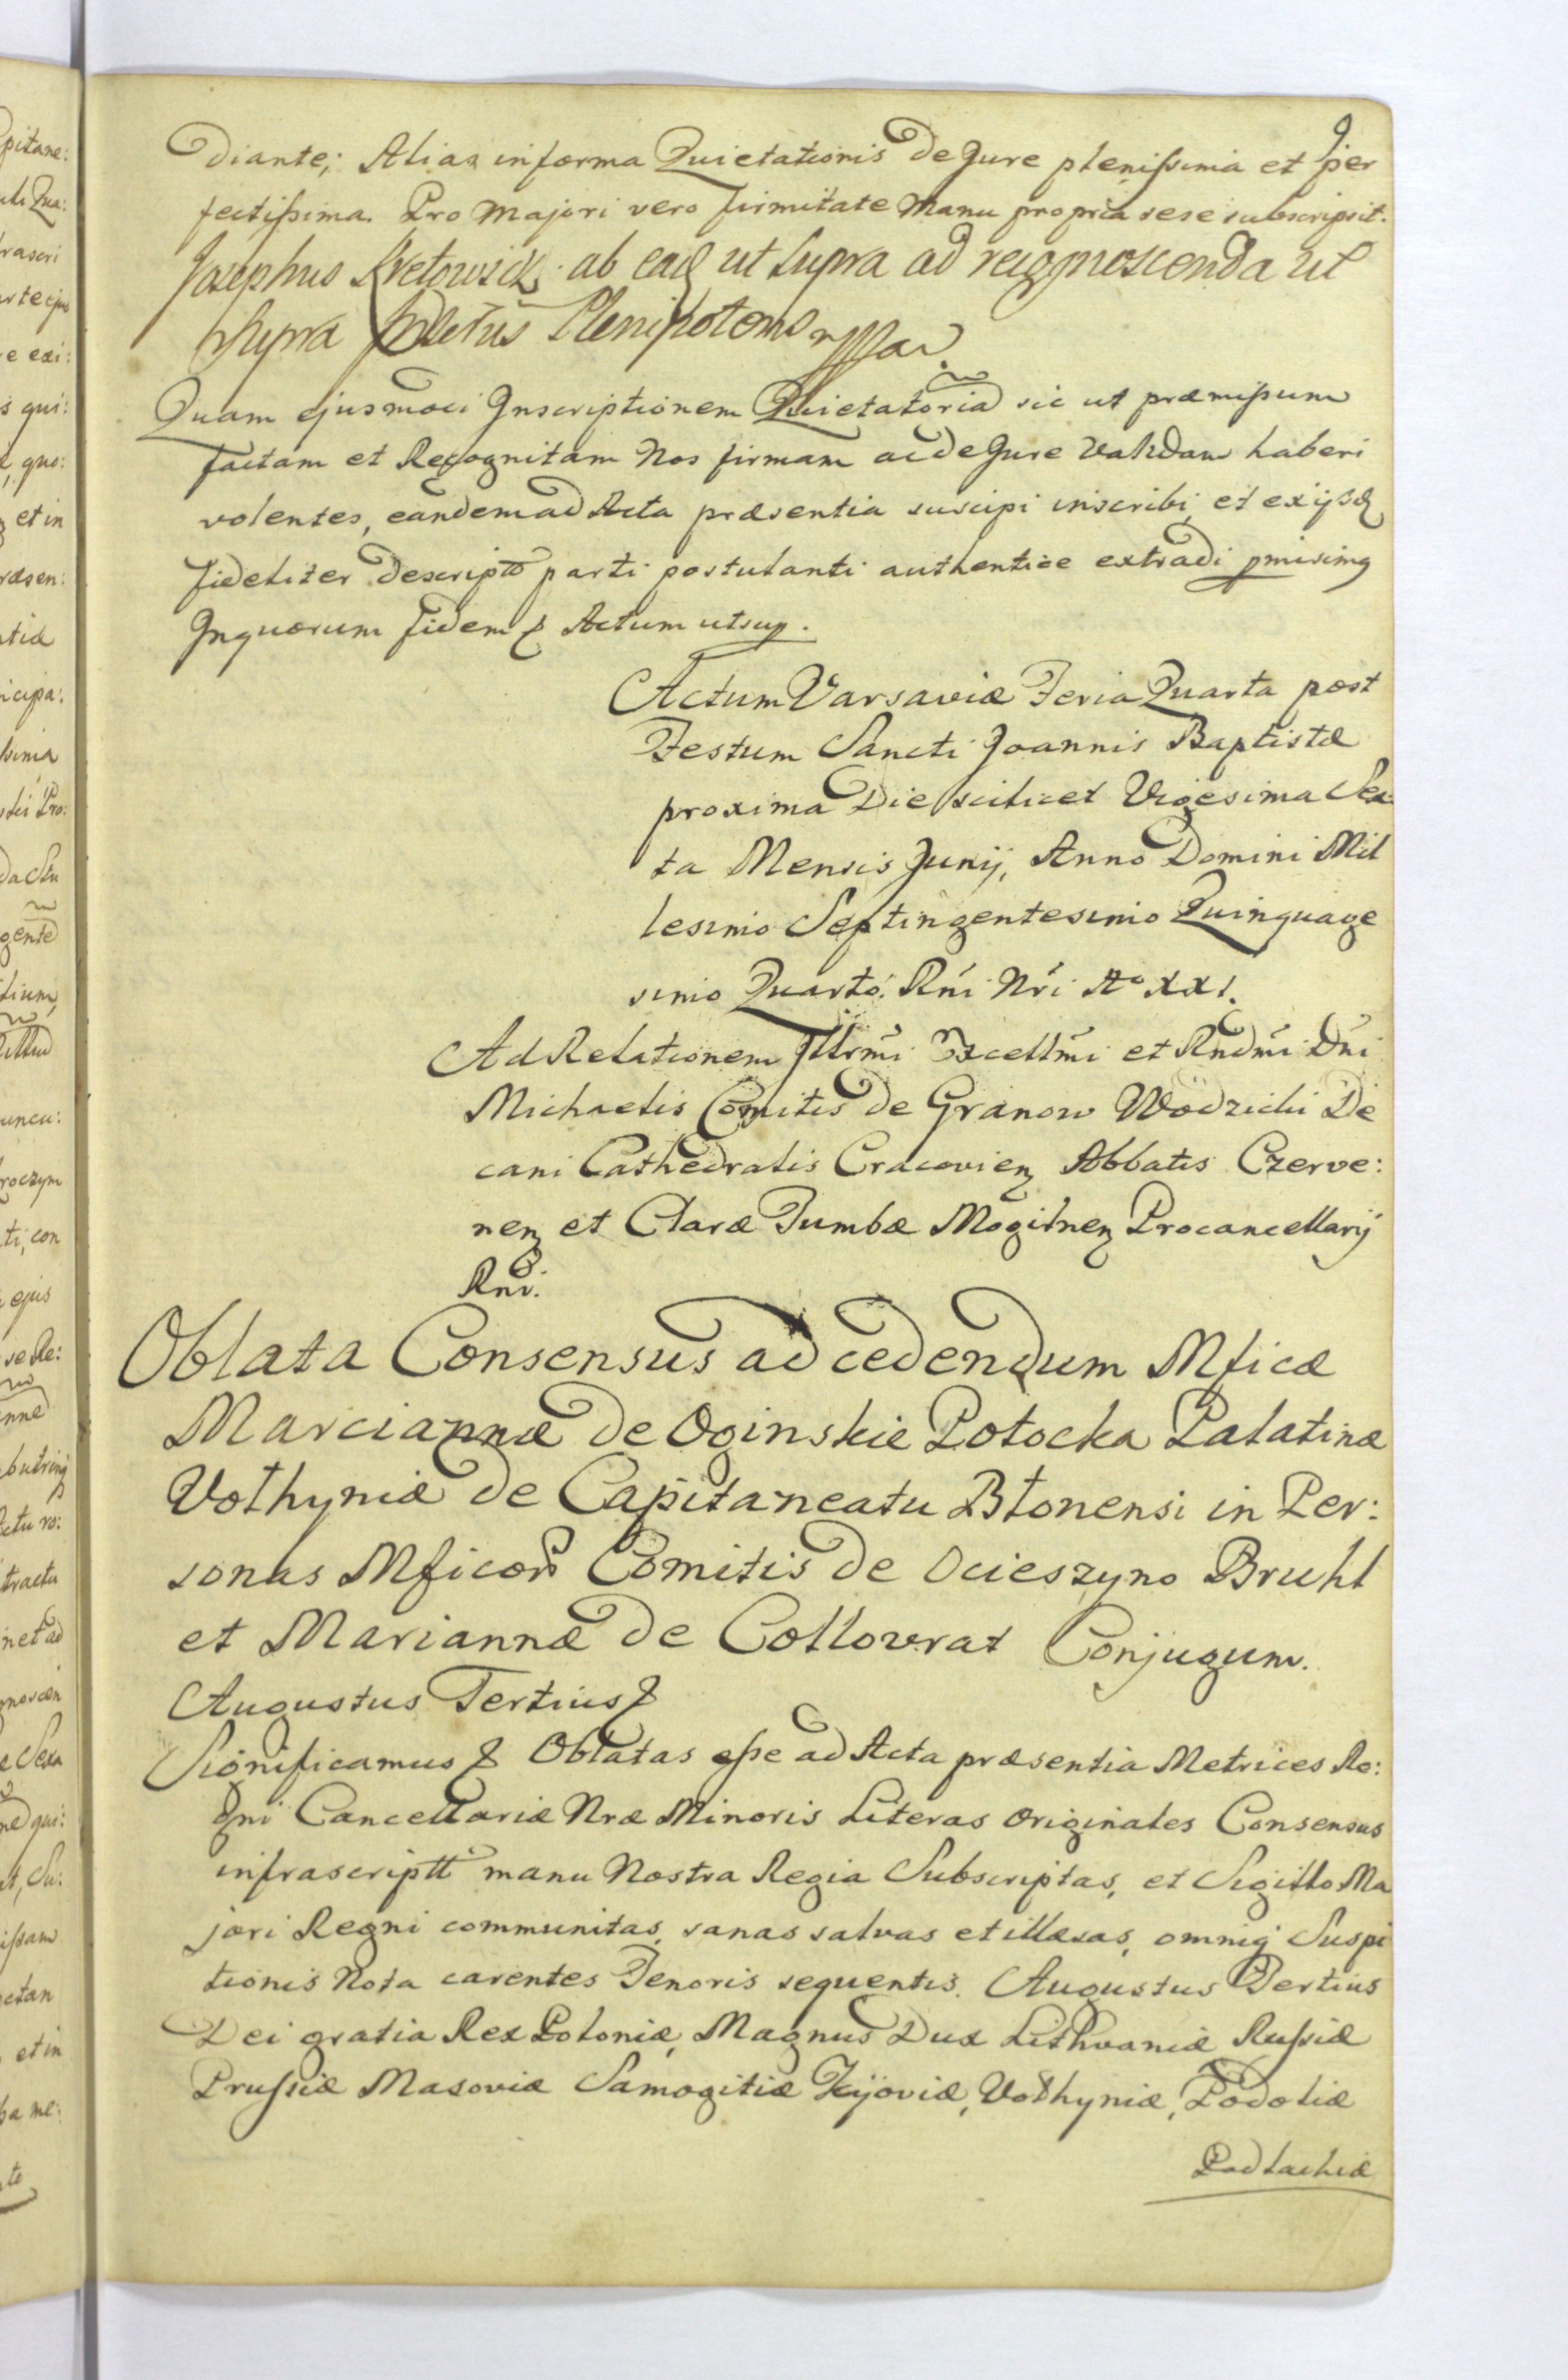 9
diante; Alias in forma Quietationis de Jure plenissima et per
fectissima. Pro Majori vero firmitate Manu propria sese subscripsit.
Josephus ab eadq ut Supra ad recognoscenda ut
Supra Plenipotens mpp
Quam ejusmodi Inscriptionem Quietatoria sic ut præmissum
factam et Recognitam Nos firmam ac de Jure Validam haberi
volentes, eandem ad Acta præsentia suscipi inscribi, et ex ijsdq
fideliter descriptt parti postulanti authentice extradi pmisimq
In quorum fidem & Actum ut sup.
Actum Varsaviæ Feria Quarta post
Festum Sancti Joannis Baptistæ
proxima Die scilicet Vigesima Sex
ta Mensis Junij, Anno Domini Mil
lesimo Septingentesimo Quinquage
simo Quarto. Rni Nri Ao XXI.
Ad Relationem Illrmi Excellmi et Rndmi Dni
Michaelis Comitis de Granow Wodzicki De
cani Cathedralis Cracovien Abbatis Czerve:
nen et Claræ Tumbæ Mogilnen Procancellarij
Rni.
Oblata Consensus ad cedendum Mficæ
Marciannæ de Oginskie Potocka Palatinæ
Volhyniæ de Capitaneatu Blonensi in Per:
sonas Mficor Comitis de Ocieszyno Bruhl
et Mariannæ de Collowrat Conjugum.
Augustus Tertius &
Significamus & Oblatas esse ad Acta præsentia Metrices Re:
gni Cancellariæ Nræ Minoris Literas Originales Consensus
infrascriptt manu Nostra Regia Subscriptas, et Sigillo Ma
jori Regni communitas, sanas salvas et illæsas, omniq Suspi
tionis Nota carentes Tenoris sequentis. Augustus Tertius
Dei gratia Rex Poloniæ, Magnus Dux Lithvaniæ Russiæ
Prussiæ Masoviæ Samogitiæ Kijoviæ, Volhyniæ, Podoliæ
Podlachiæ